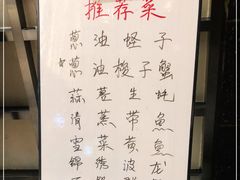 推荐菜
葱油蛏子
葱油梭子蟹
蒜蓉生蚝
清蒸带鱼
雪菜黄鱼
锦绣波龙